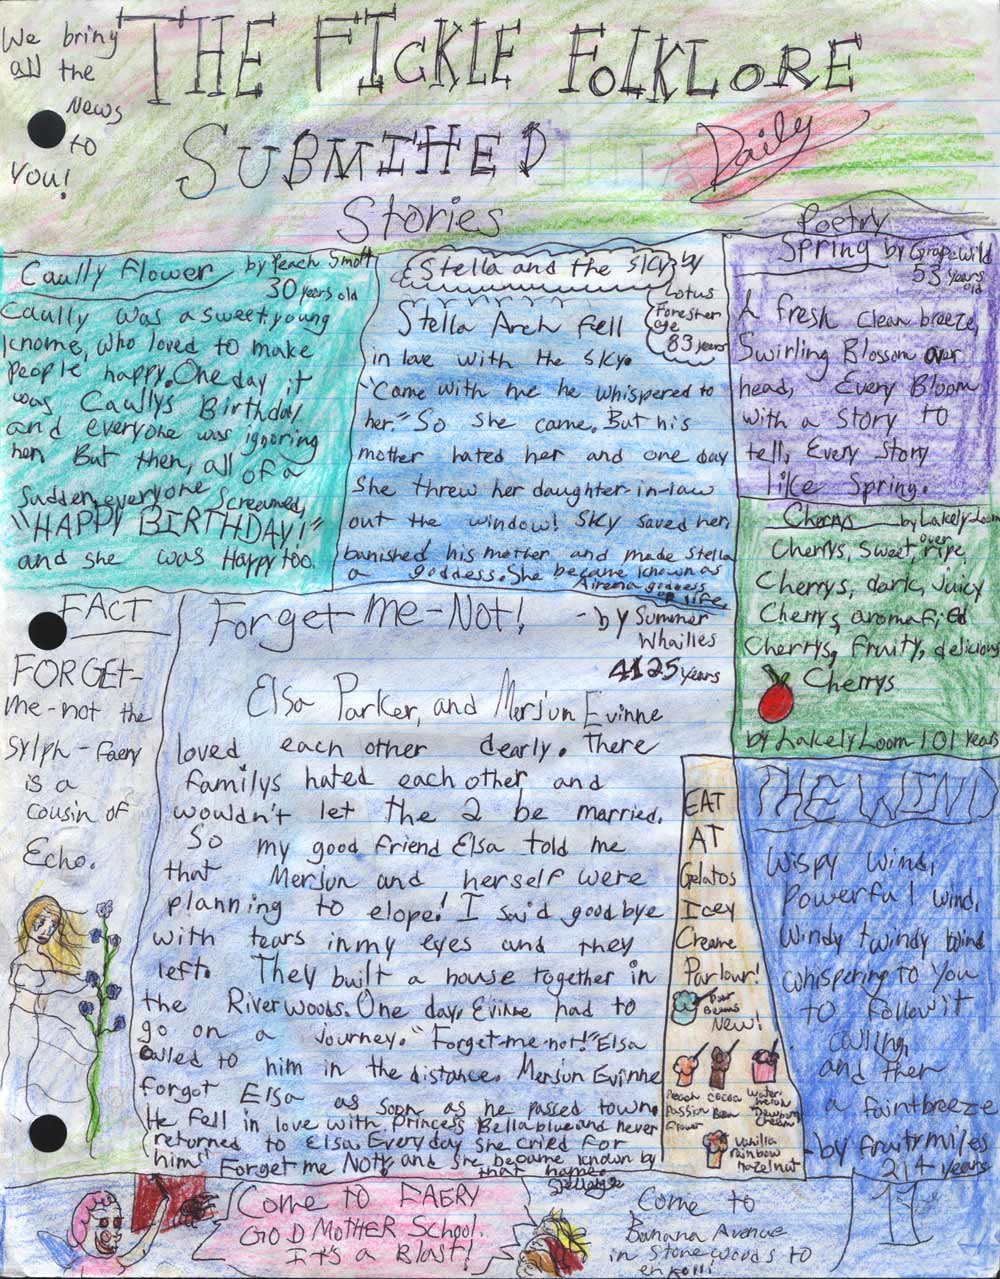 We bring
all the
News
to
You!
THE FICKLE FOLKLORE
SUBMITTED
Daily
Stories
Caully Flower by Peach Smott
30 years old
Caully was a sweet young
Knome, who loved to make
People happy. One day it
was Caullys Birthday
and everyone was ignoring
her. But then, all of a
sudden, everyone screamed,
"HAPPY BIRTHDAY!"
and she was Happy too.
Stella and the Sky by
Lotus
Forester
age
83 years
Stella Arch fell
in love with the sky.
"Come with me he whispered to
her." So she came. But his
mother hated her and one day
She threw her daughter-in-law
out the window! Sky saved her,
banished his mother and made Stella
a goddess. She became known as
goddess
life.
Poetry
Spring by Grapewild
53 years
old
A fresh clean breeze,
Swirling Blossom over
head, Every Bloom
with a story to
tell, Every story
like Spring.
Cherrys by Lakely Loom
Cherrys, sweet, over ripe,
Cherrys, dark, juicy
Cherrys, aromatic,
Cherrys, fruity, delicious
Cherrys
by Lakely Loom 101 Years
FACT
FORGET-
me-not the
Sylph-Faery
is a
cousin of
Echo.
Forget Me-Not!
-by Summer
Whailles
4125 years
Elsa Parker, and Merjun Evinne
loved each other dearly. There
familys hated each other and
wouldn't let the 2 be married.
So my good friend Elsa told me
that Merjun and herself were
planning to elope! I said goodbye
with tears in my eyes and they
left. They built a house together in
the Riverwoods. One day, Evinne had to
go on a journey. "Forget-me-not!" Elsa
called to him in the distance. Merjun Evinne
forgot Elsa as soon as he passed town.
He fell in love with Princess Bellablue and never
returned to Elsa. Everyday she cried for
him" Forget me Not" and she became known by
that name.
EAT
AT
Gelatos
Icey
Creame
Parlour!
New!
Peach
Passion
Flower
cocoa
Bean
Water
melon
Cream
vanilla
rainbow
hazelnut
THE WIND
Wispy wind,
Powerful wind,
Windy twindy wind
whispering to you
to follow it
calling,
and then
a faint breeze
-by fruitymiles
214 years
COME TO FAERY
GOD MOTHER School.
It's a Blast!
Come to
Banana Avenue
in Stonewoods to
enroll!
11